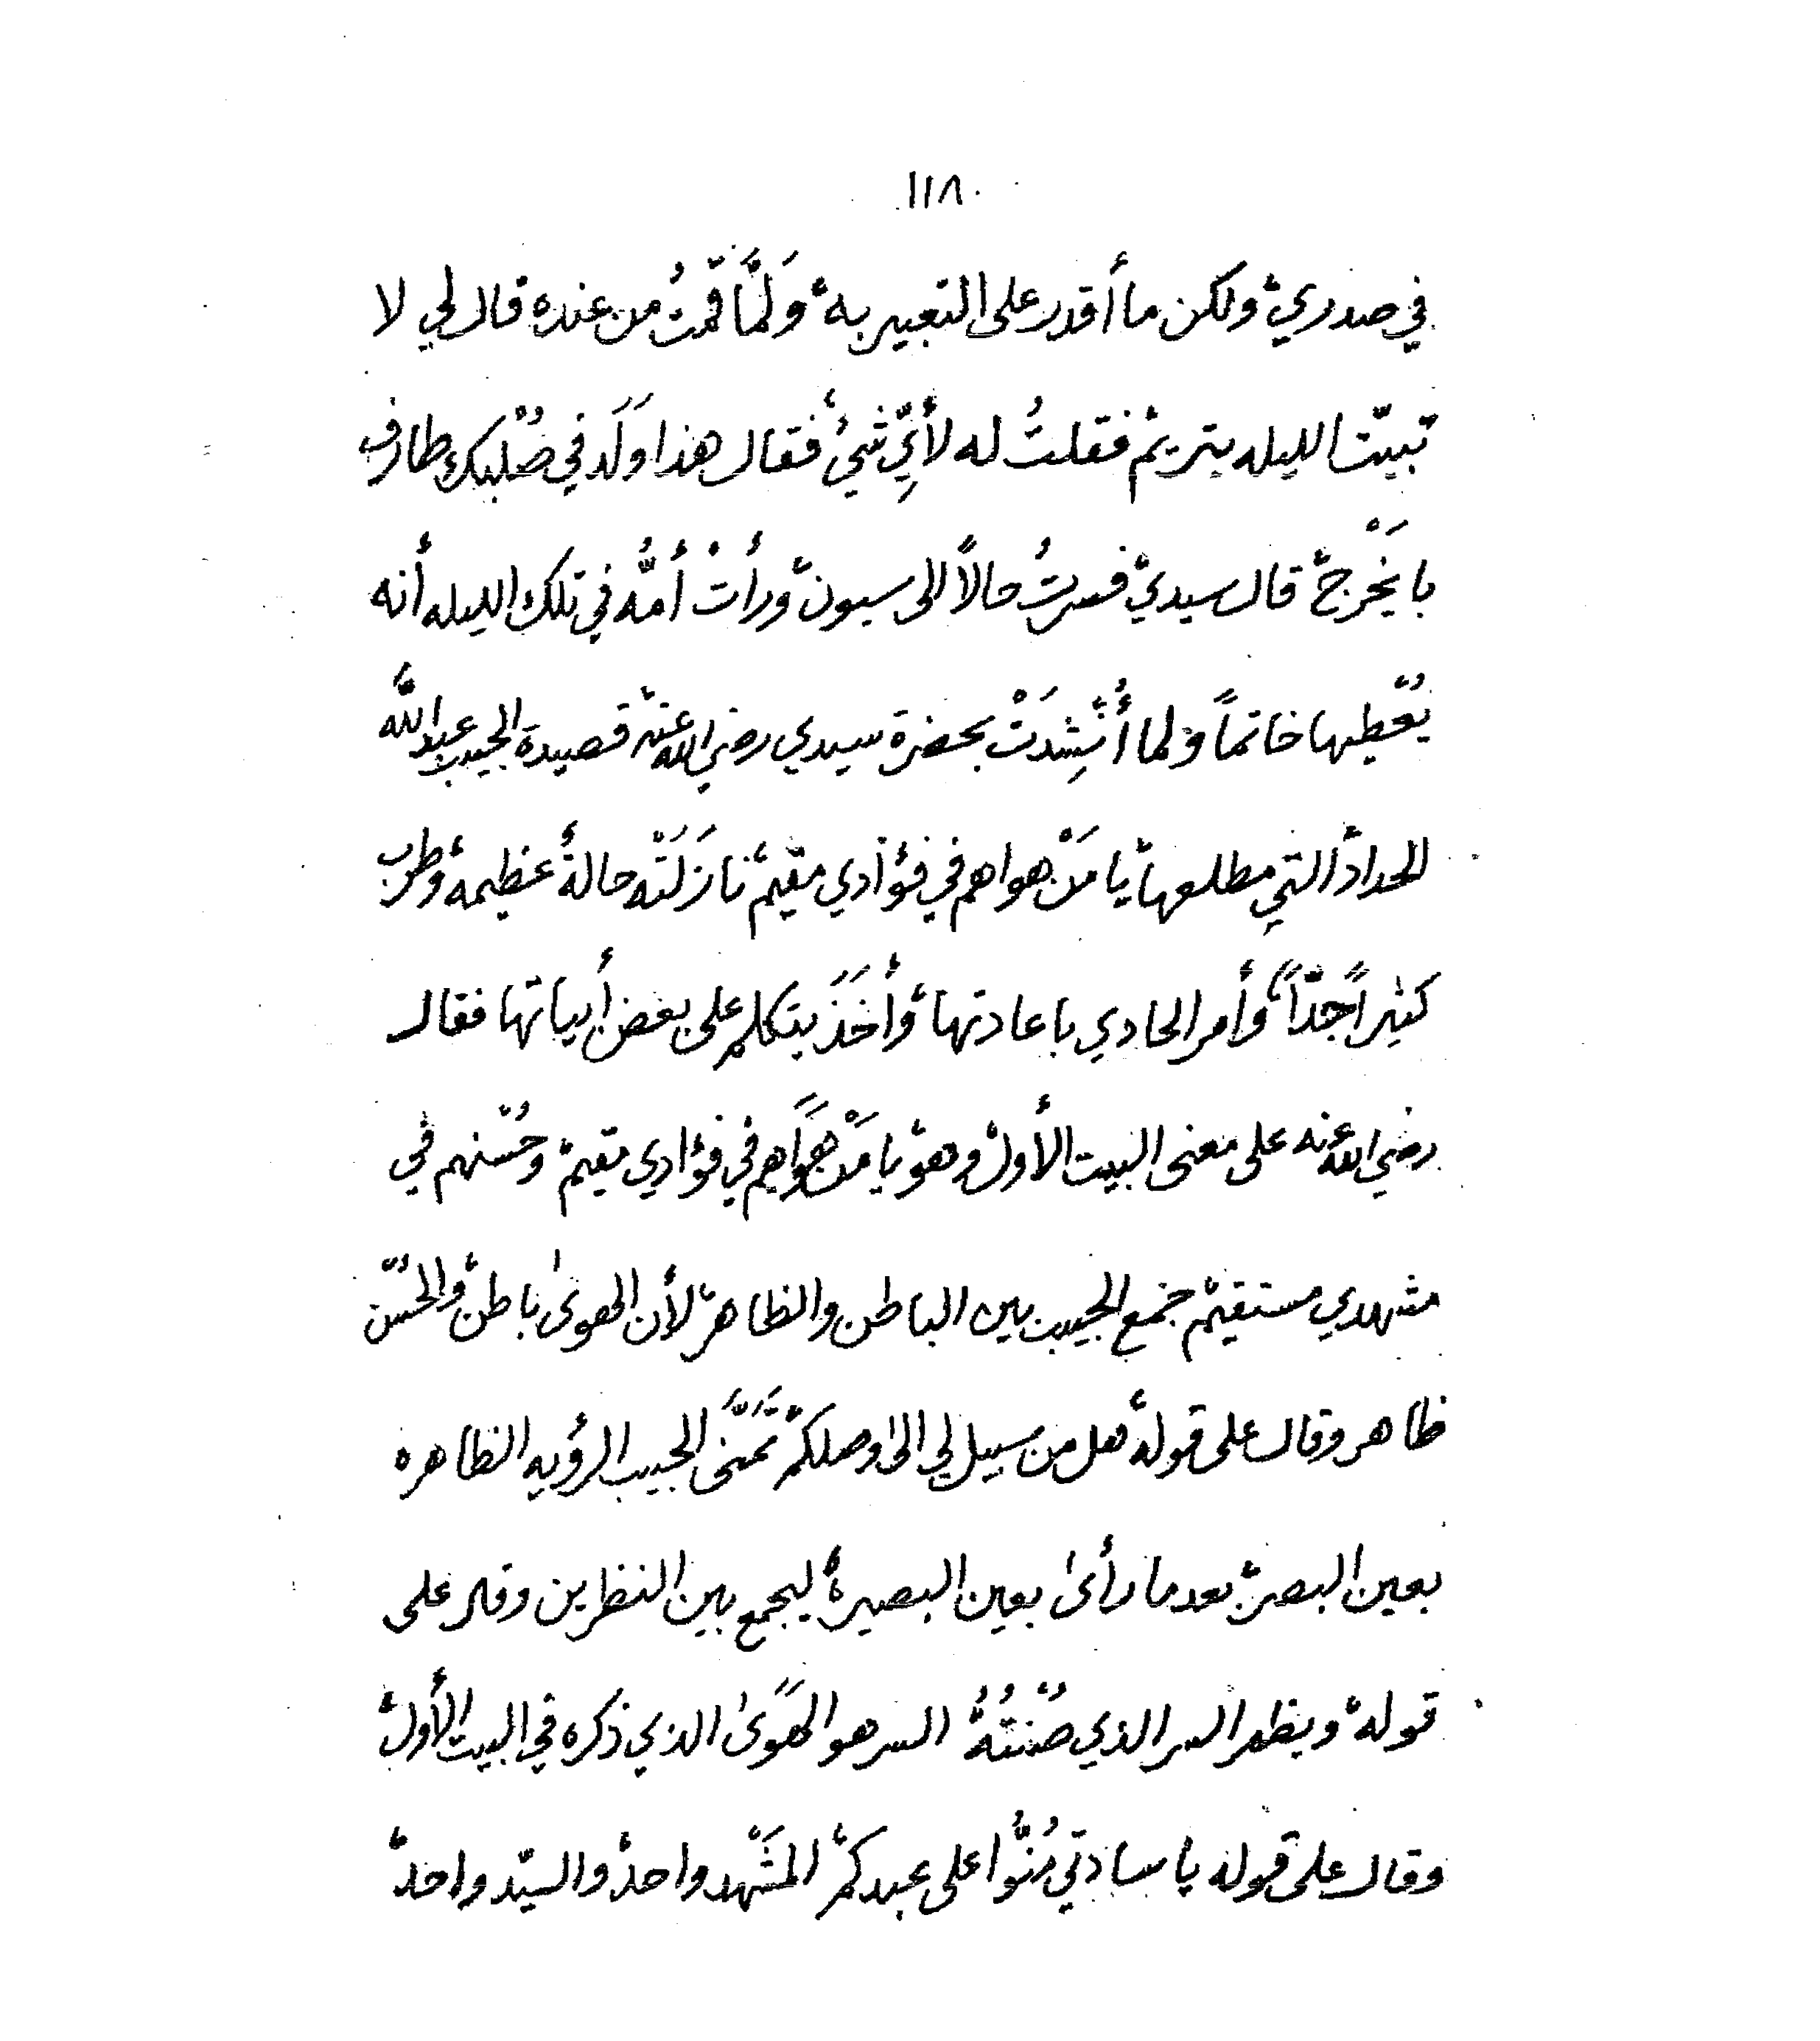 ١١٨
في صدري، ولكن ما أقدر على التعبير به، وَلَمَّا قُمتُ من عنده قال لي لا
تبيّت الليله بتريم، فقلتُ له لأيِّ شيْ، فقال هذا وَلَد في صُلْبك طارف
بايَخْرج، قال سيدي، فسرتُ حالاً الى سيون، ورأتْ أُمُّه في تلك الليله أنه
يُعْطيها خاتماً، ولما أُنْشِدَتْ بحضرة سيدي رضي الله عنه، قصيدة الحبيب عبد الله
الحداد، التي مطلعها، يا مَنْ هواهم في فؤادي مقيم، نازَلَتْه حالةُ عظيمه، وطرب
كثيراً جدّاً، وأمر الحادي باعادتها، وأخَذَ يتكلم على بعض أبياتها فقال
رضي الله عنه على معنى البيت الأول، وهو، يا مَنْ هَوَاهم في فؤادي مقيم، وحُسْنهم في
مشهدي مستقيم، جمع الحبيب بين الباطن والظاهر، لأن الهوىٰ باطن، والحُسْن
ظاهر وقال على قوله، هل من سبيل لي الىٰ وصلكم، تَمَنَّى الحبيب الرؤيه الظاهره
بعين البصر، بعد ما رأىٰ بعين البصيرة، ليجمع بين النظرين وقال على
قوله، ويظهر السر الذي صُنْتُهُ، السر هو الهَوَىٰ الذي ذكره في البيت الأول،
وقال على قوله يا سادتي مُنُّوا على عبدكم، المَشْهد واحد، والسيّد واحد،